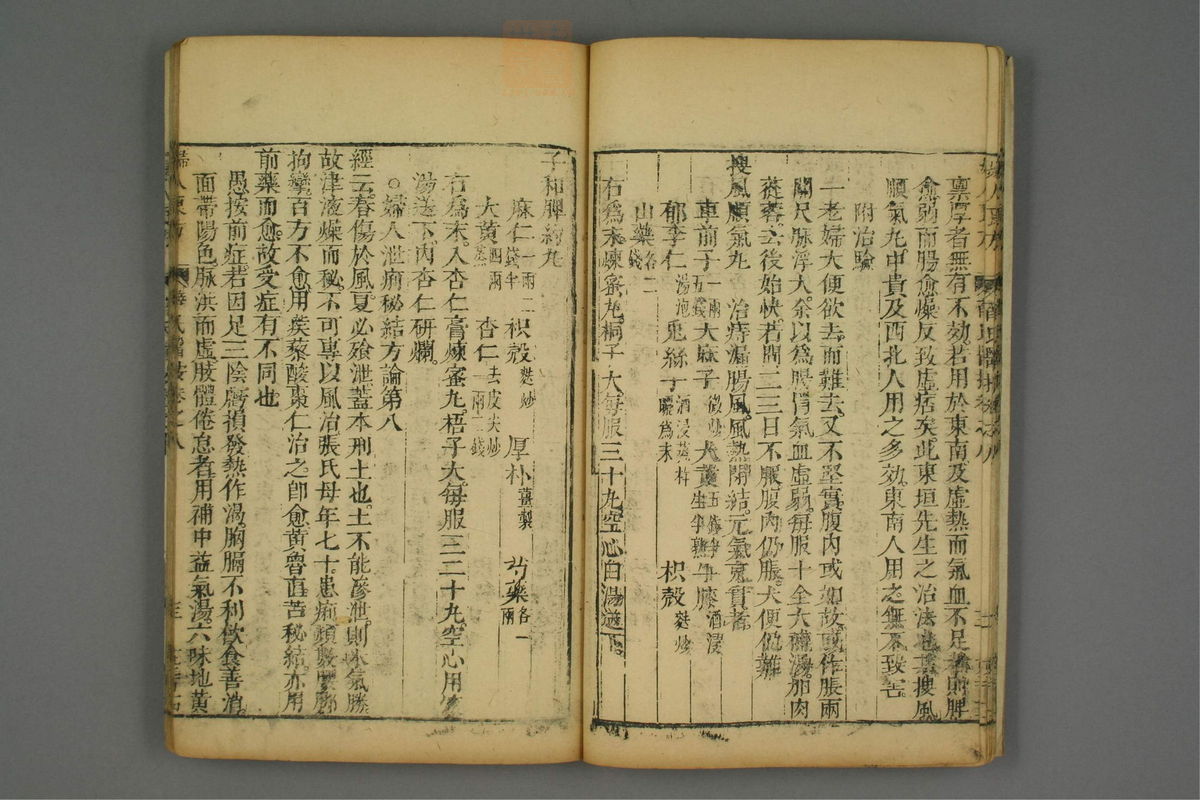 稟厚者無有不効若用於東南及虛熱而氣血不足者則脾
愈弱而腸愈燥反致虛痞矣此東垣先生之治法也其搜風
順氣丸中貴及西北人用之多効東南人用之無不致害
附治驗
一老婦大便欲去而難去又不堅實腹内或如故或作脹兩
關尺脉浮大余以爲腸胃氣血虛弱每服十全大補湯加肉
蓯蓉去後始快若間二三日不服腹内仍脹大便仍難
搜風順氣丸 治痔漏腸風風熱閉結元氣充實者
車前子一兩五錢 大麻子微炒 大黃五錢半生半熟 牛膝酒浸
郁李仁湯泡 菟絲子酒浸蒸杵曬爲末 枳殼麩炒
山藥各二錢
右爲末煉蜜丸桐子大每服三十丸空心白湯送下
子和脾約丸
麻仁一兩二錢半 枳殼麩炒 厚朴薑製 芍藥各一兩
大黃四兩蒸 杏仁去皮尖炒一兩二錢
右爲末入杏仁膏煉蜜丸梧子大每服三二十丸空心用
湯送下内杏仁研爛
○婦人泄痢秘結方論第八
經云春傷於風夏必飱泄蓋木刑土也土不能滲泄則木氣勝
故津液燥而秘不可專以風治張氏母年七十患痢頻數
拘攣百方不愈用蒺藜酸棗仁治之卽愈黃魯直苦秘結亦用
前藥而愈故受症有不同也
愚按前症若因足三陰虧損發熱作渴胸膈不利飲食善消
面帶陽色脉洪而虛肢體倦怠者用補中益氣湯六味地黃